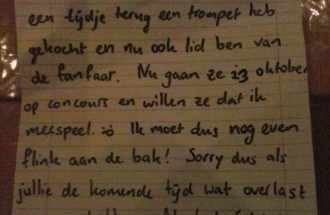 een tijdje terug een trompet heb
gekocht en nu ook lid ben van
de fanfaar. Nu gaan ze 23 oktober
op concours en willen ze dat ik
meespeel. :o Ik moet dus nog even
flink aan de bak! Sorry dus als
jullie de komende tijd wat overlast